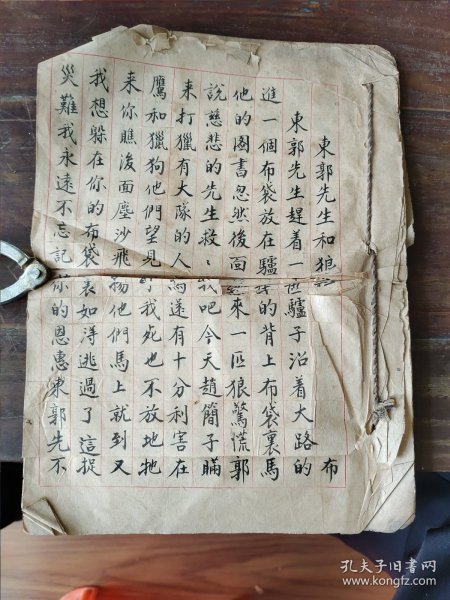 東郭先生和狼
布
東郭先生趕着一匹驢子沿着大路的
進一個布袋放在驢的背上布袋裏馬
他的圖書忽然後面來一匹狼驚慌郭
說慈悲的先生救〻我吧今天趙簡子瞞
来打獵有大隊的人馬還有十分利害在
鷹和獵狗他們望見我死也不放地牠
来你瞧後面塵沙飛揚他們馬上就到又
我想躲在你的布袋裏如淂逃過了這捉
災難我永遠不忘記你的恩惠東郭先不
孔夫子旧书网
www.kongfz.com